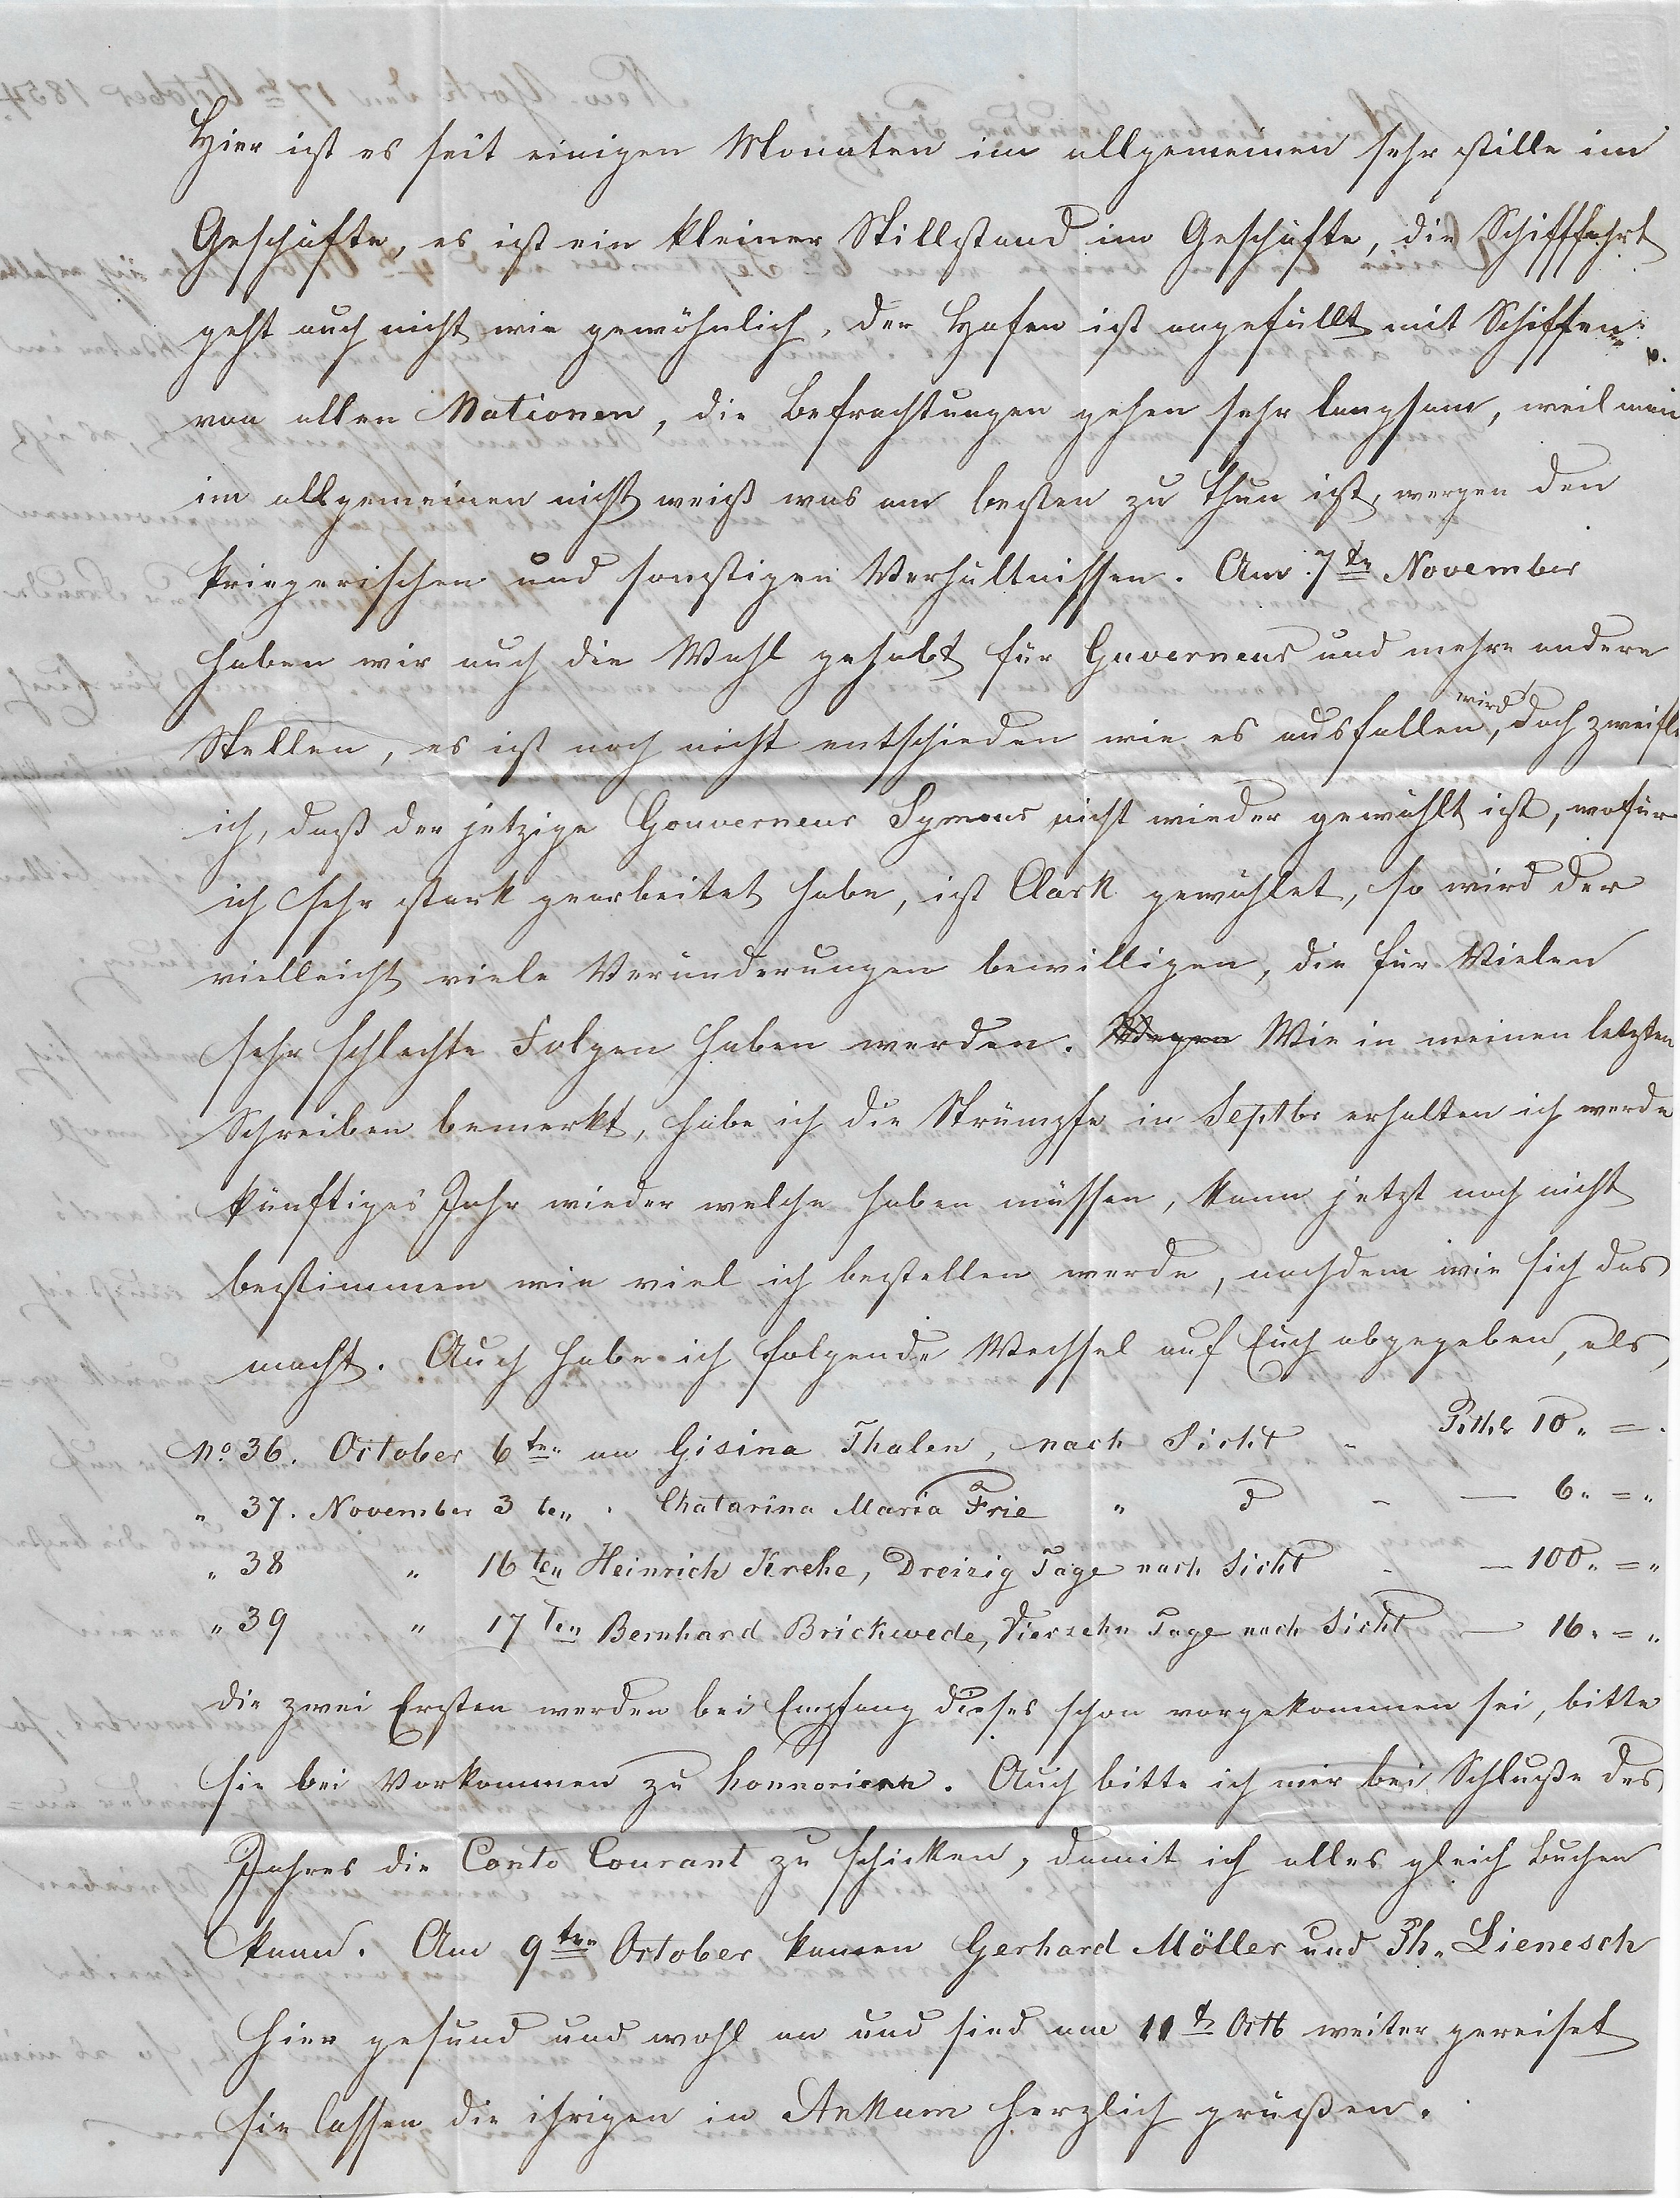 Hier ist es seit einigen Monaten im allgemeinen sehr stille im
Geschäfte, es ist ein kleiner Stillstand im Geschäfte, die Schifffahrt
geht auch nicht wie gewöhnlich, der Hafen ist angefüllt mit Schiffen
von allen Nationen, die Befrachtungen gehen sehr langsam, weil man
im allgemeinen nicht weiß was am besten zu thun ist, wergen den
kriegerischen und sonstigen Verhältnissen. Am 7tn November
haben wir auch die Wahl gehabt für Guverneur und mehre andere
Stellen, es ist noch nicht entschieden wie es ausfallen wird, doch zweifle
ich, daß der jetzige Gouverneur Symour nicht wieder gewählt ist, wofür
ich sehr stark gearbeitet habe, ist Clark gewählet, so wird der
vielleicht viele Veränderungen bewilligen, die für Vielen
sehr schlechte Folgen haben werden. Wegen Wie in meinen letzten
Schreiben bemerkt, habe ich die Strümpfe in Septbr erhalten ich werde
künftiges Jahr wieder welche haben müssen, kann jetzt noch nicht
bestimmen wie viel ich bestellen werde, nachdem wie sich das
macht. Auch habe ich folgende Wechsel auf Euch abgegeben, als
No 36. October 6ten an Gisina Thalen, nach Sicht - Rthlr 10 „ = .
„ 37. November 3ten . Chatarina Maria Frie „ d - — 6 „ = „
„ 38 „ 16ten Heinrich Krehe, Dreizig Tage nach Sicht - — 100 „ = „
„ 39 „ 17ten Bernhard Brickwede, Vierzehn Tage nach Sicht — 16 „ = „
die zwei Ersten werden bei Empfang dieses schon vorgekommen sei, bitte
sie bei Vorkommen zu honnorieren. Auch bitte ich mir bei Schluße des
Jahres die Conto Courant zu schicken, damit ich alles gleich buchen
kann. Am 9ten October kamen Gerhard Möller und Ph. Lienesch
hier gesund und wohl an und sind am 11t Octb weiter gereiset
sie lassen die ihrigen in Ankum herzlich grüßen.